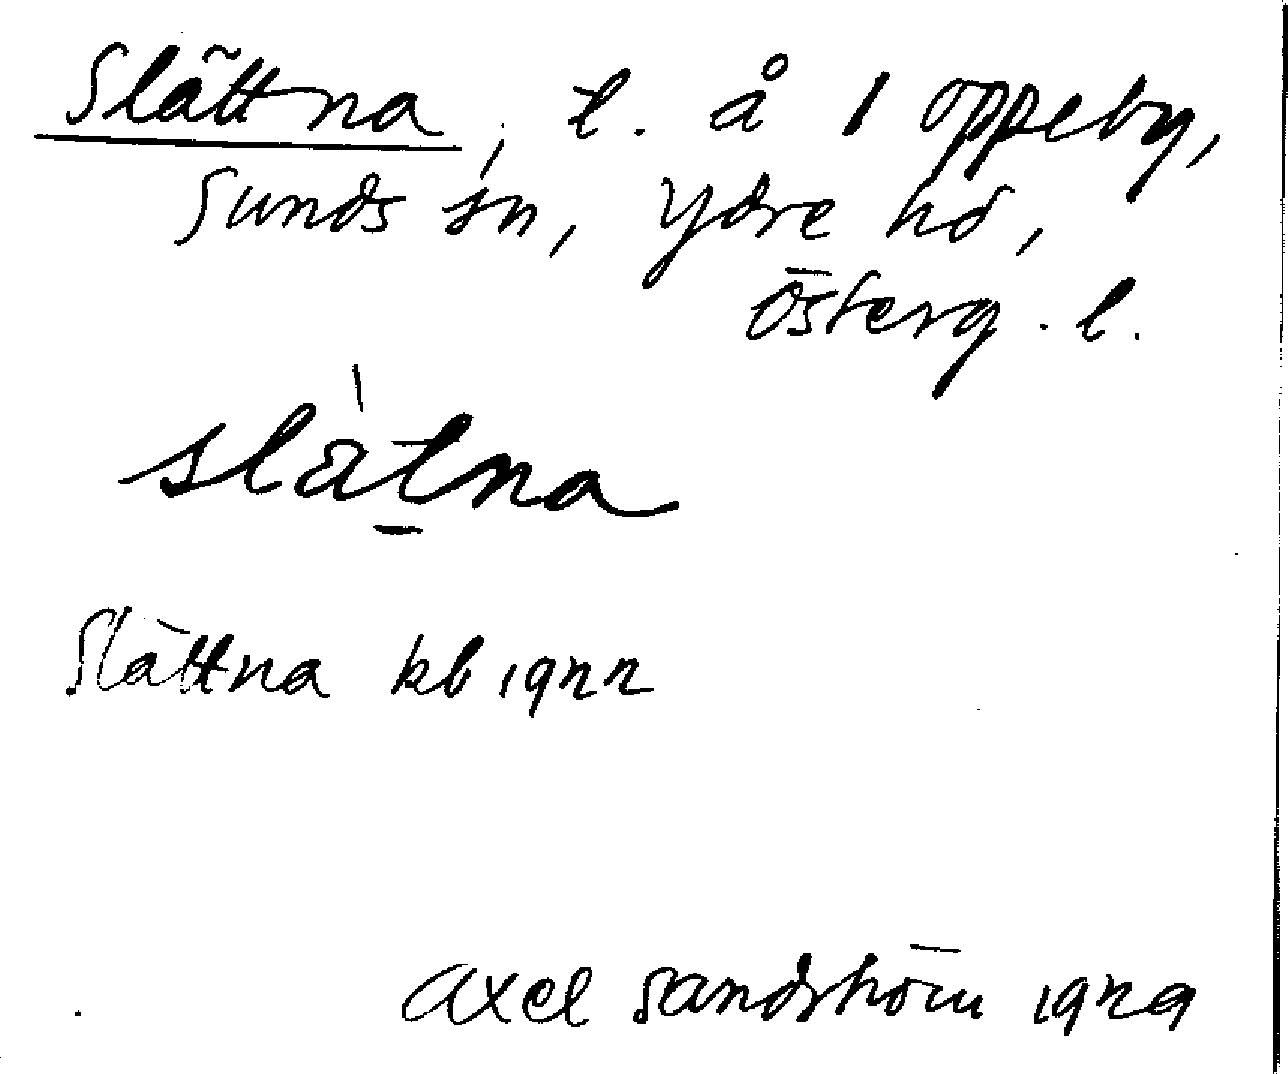 Slättna, t. å 1 Oppeby,
Sunds sn, Ydre hd,
Österg. l.
slàtna
Slättna kb 1922
Axel Sandström 1929